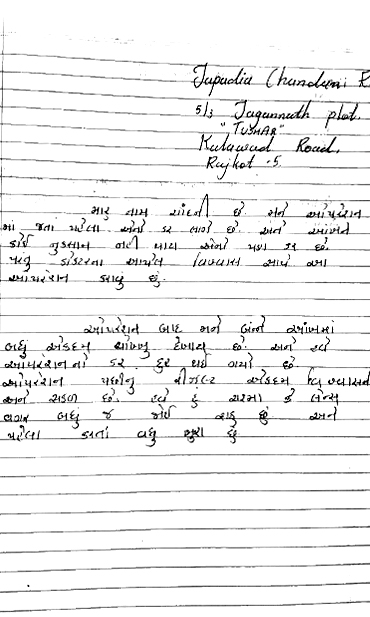 Tapadia Chandani R
5/3 Jagannath plot.
"TUSHAR"
Kalawad Road.
Rajkot -5.
મારુ નામ ચાંદની છે. મને ઓપરેશન
મા જતા પહેલા એનો ડર લાગે છે. અને આંખને
કોઈ નુકસાન નહી થાય એનો પણ ડર છે.
પરંતુ ડોક્ટરના આપેલ વિશ્વાસ સાથે આ
ઓપરેશન કરાવું છું.
ઓપરેશન બાદ મને બંને આંખમાં
બધું એકદમ ચોખ્ખુ દેખાય છે. અને હવે
ઓપરેશનનો ડર દુર થઈ ગયો છે.
ઓપરેશન પછીનુ રીઝલ્ટ એકદમ
અને સફળ છે. હવે હું ચશ્મા કે લેન્સ
વગર બધું જ જોઈ શકુ છું. અને
પહેલા કરતાં વધુ ખુશ છું